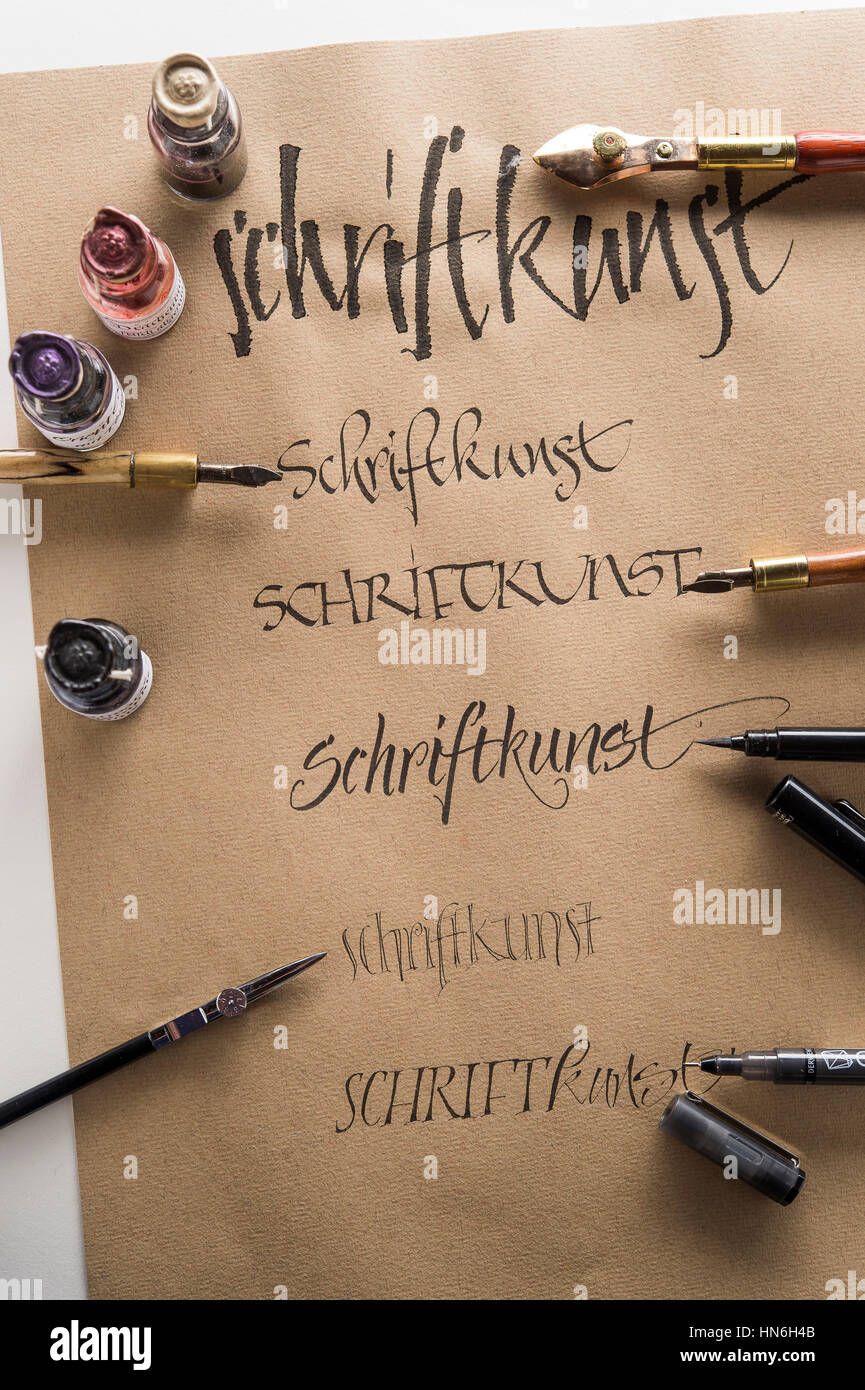 schriftkunst
Schriftkunst
SCHRIFTKUNST
Schriftkunst
schriftkunst
SCHRIFTkunst
alamy
Image ID: HN6H4B
www.alamy.com